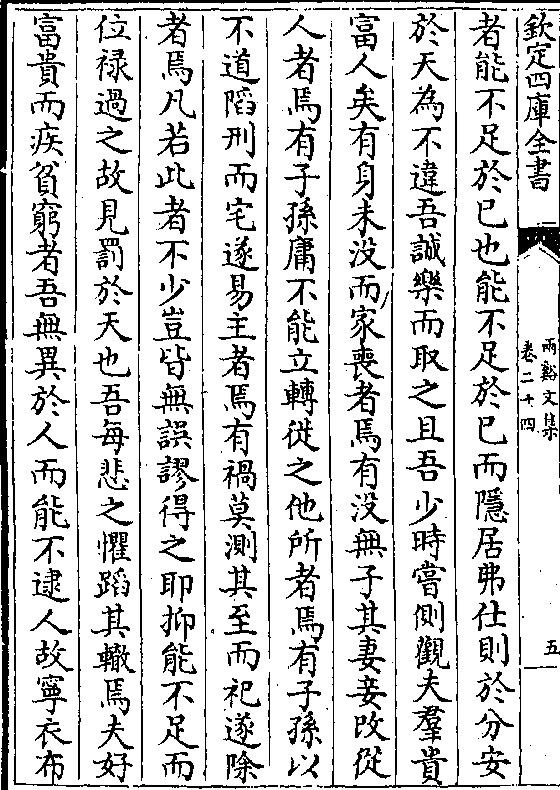 欽定四庫全書
兩谿文集
卷二十四
五
者能不足於已也能不足於已而隱居弗仕則於分安
於天為不違吾誠樂而取之且吾少時嘗側觀夫羣貴
富人矣有身未没而家喪者焉有没無子其妻妾改從
人者焉有子孫庸不能立轉徙之他所者焉有子孫以
不道䧟刑而宅遂易主者焉有禍莫測其至而祀遂除
者焉凡若此者不少豈皆無誤謬得之耶抑能不足而
位禄過之故見罰於天也吾每悲之懼蹈其轍焉夫好
富貴而疾貧窮者吾無異於人而能不逮人故寧衣布